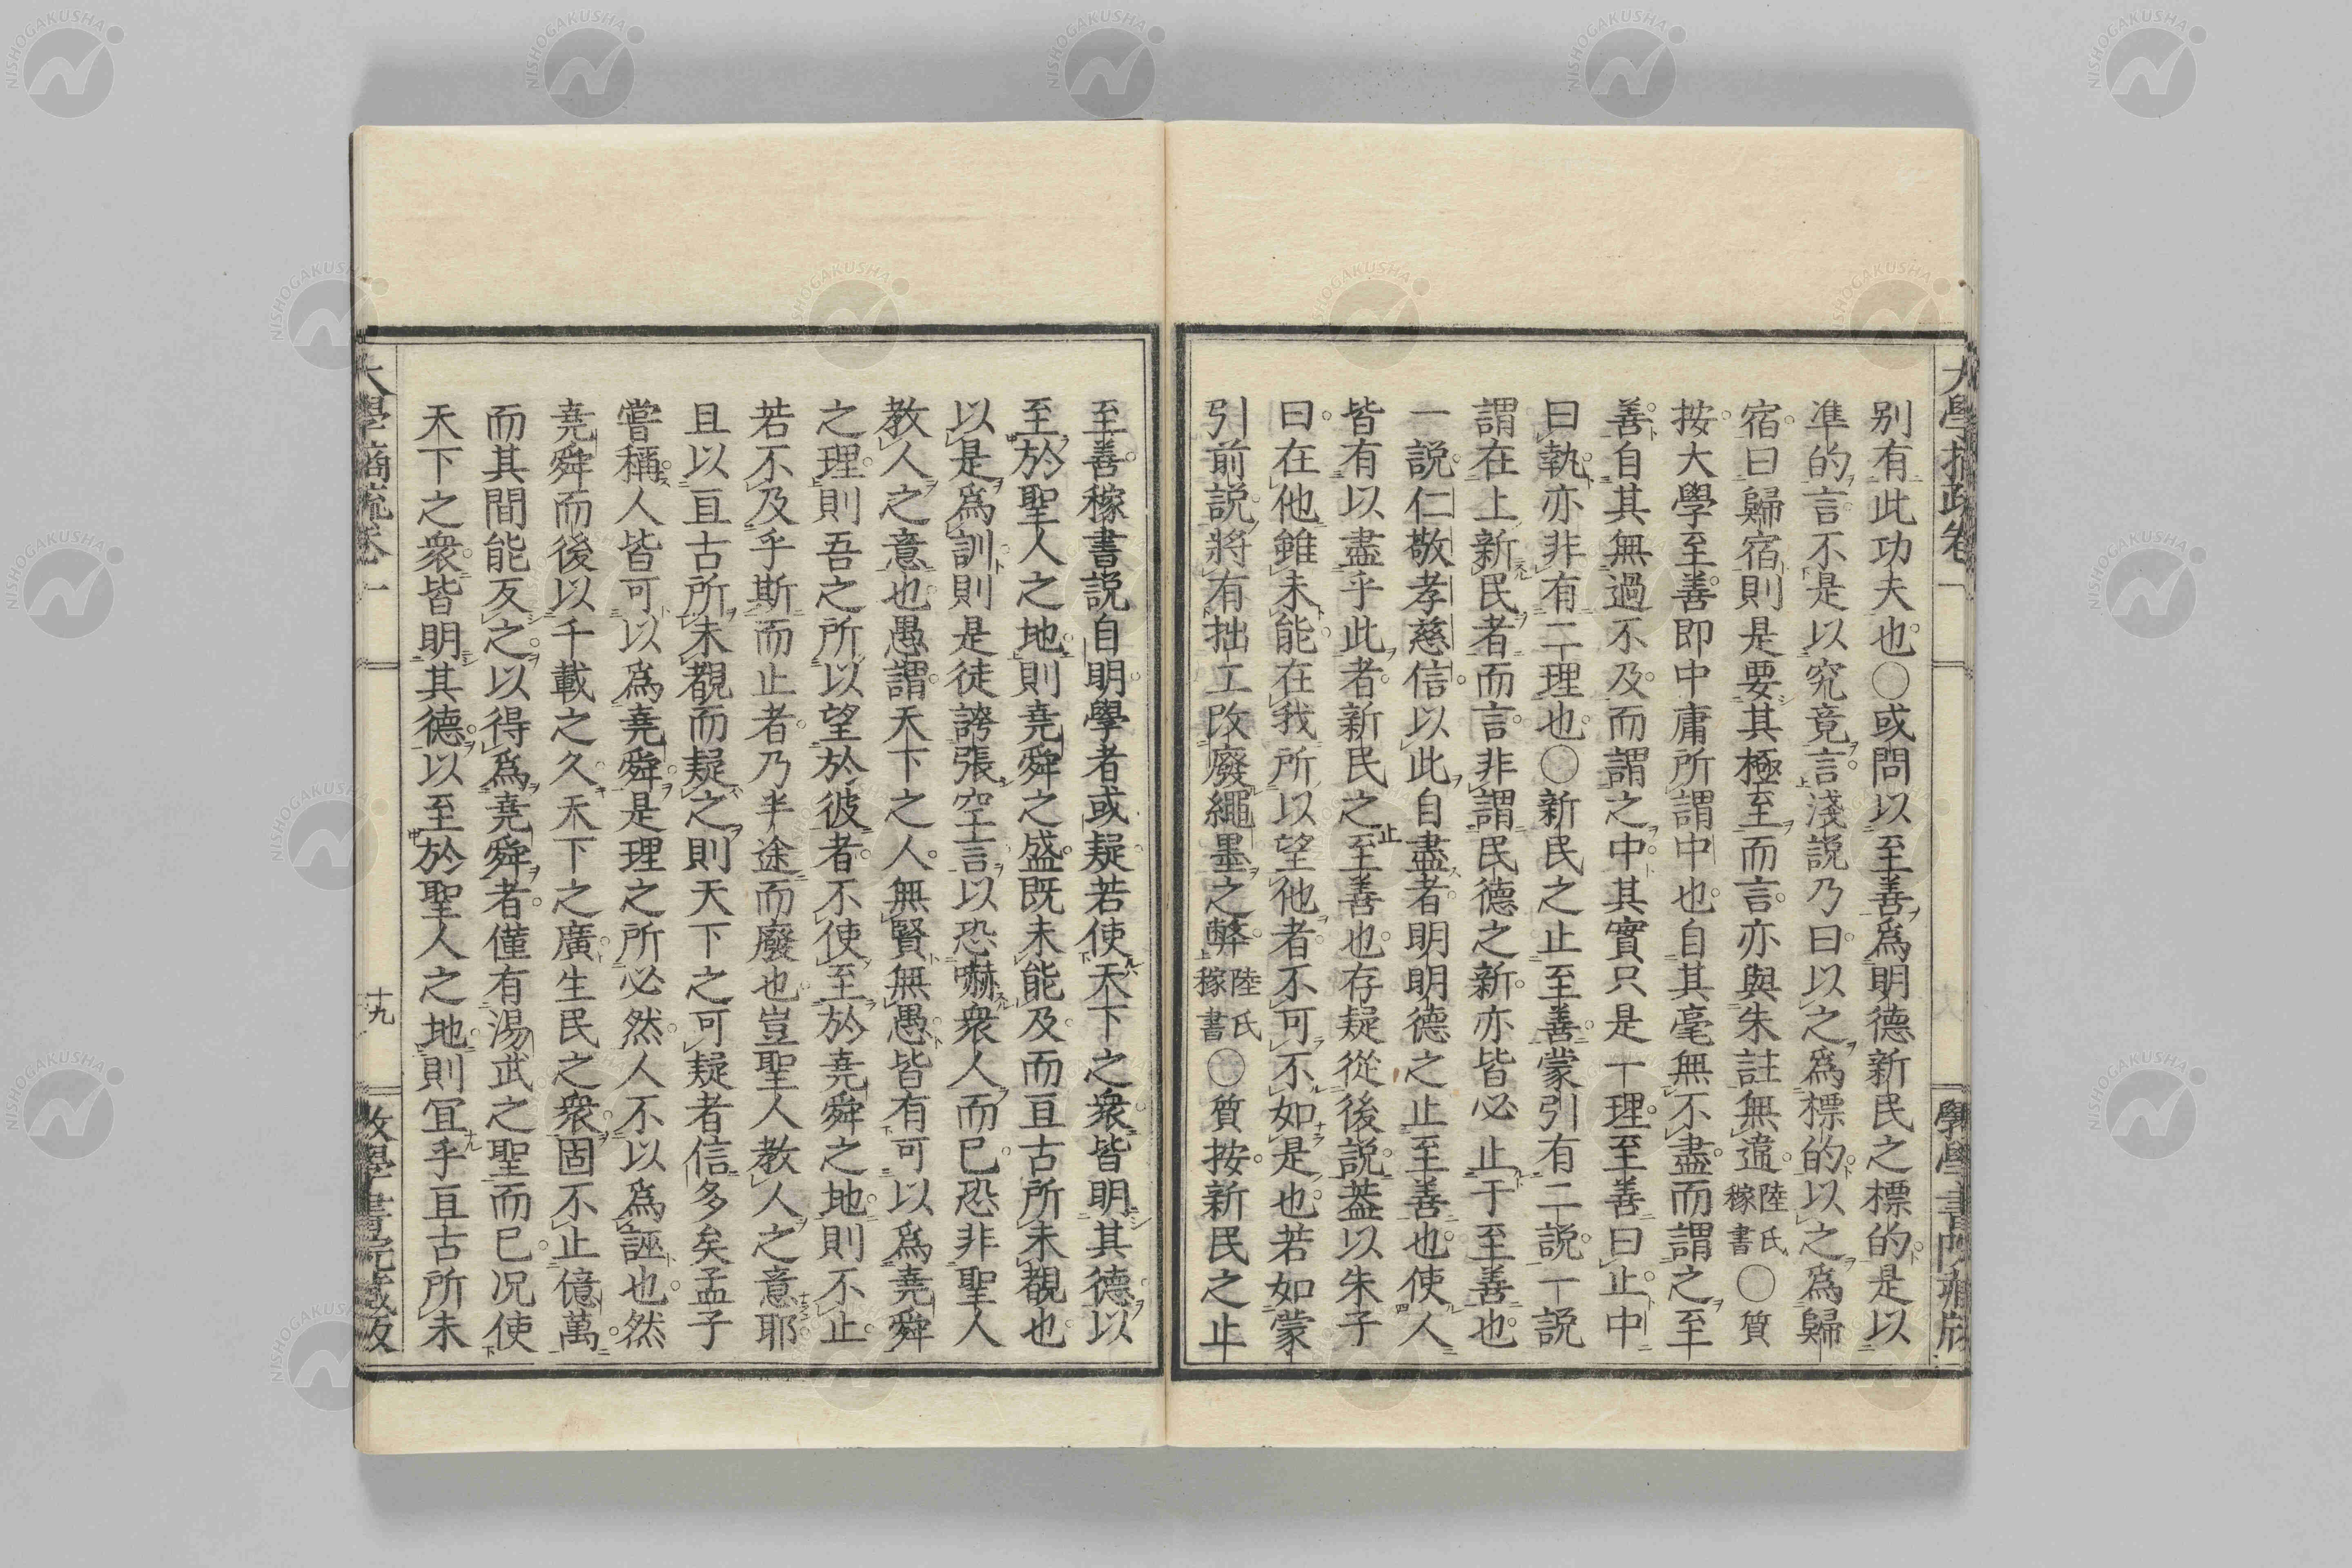 别有此功夫也○或問以至善爲明德新民之標的是以
準的言不是以究竟言淺說乃曰以之爲標的以之爲歸
宿曰歸宿則是要其極至而言亦與朱註無違陸稼書氏○質
按大學至善即中庸所謂中也自其毫無不盡而謂之至
善自其無過不及而謂之中其實只是一理至善曰止中
曰執亦非有二理也○新民之止至善蒙引有二說一說
謂在上新民者而言非謂民德之新亦皆必止于至善也
一說仁敬孝慈信以此自盡者明明德之止至善也使人
皆有以盡乎此者新民之止至善也存疑從後說葢以朱子
曰在他雖未能在我所以望他者不可不如是也若如蒙
引前說將有拙工改廢繩墨之弊陸氏稼書○質按新民之止
至善稼書說自明學者或疑若使天下之衆皆明其德以
至於聖人之地則堯舜之盛既未能及而亘古所未覩也
以是爲訓則是徒誇張空言以恐嚇衆人而已恐非聖人
教人之意也愚謂天下之人無賢無愚皆有可以爲堯舜
之理則吾之所以望於彼者不使至於堯舜之地則不止
若不及乎斯而止者乃半途而廢也豈聖人教人之意耶
且以亘古所未覩而疑之則天下之可疑者信多矣孟子
嘗稱人皆可以爲堯舜是理之所必然人不以爲誣也然
堯舜而後以千載之久天下之廣生民之衆固不止億萬
而其間能及之以得爲堯舜者僅有湯武之聖而已况使
天下之衆皆明其德以至於聖人之地則宜乎亘古所未
十九